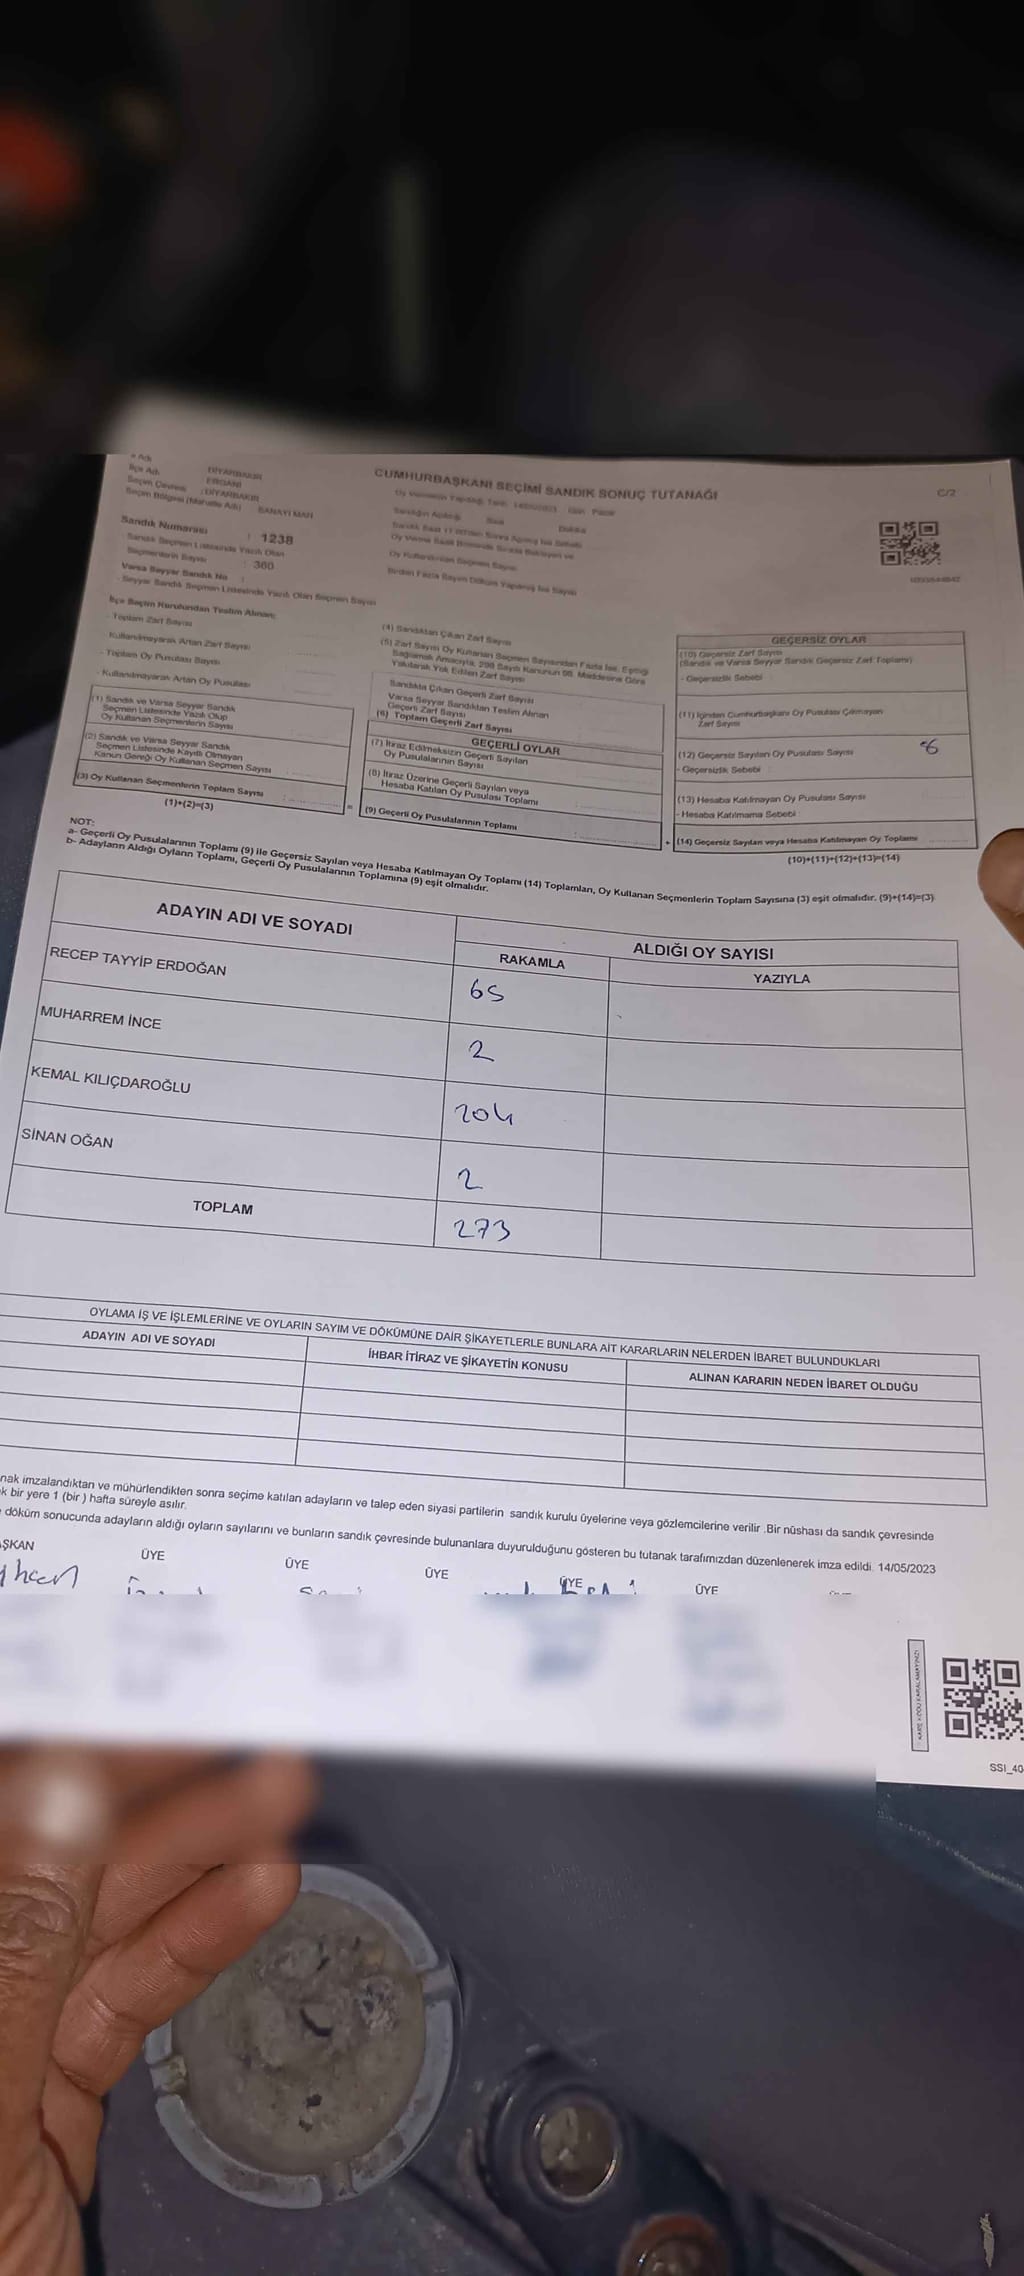 İlçe Adı : DİYARBAKIR
ERGANİ
Seçim Çevresi : DİYARBAKIR
Seçim Bölgesi (Mahalle Adı) SANAYİ MAH
CUMHURBAŞKANI SEÇİMİ SANDIK SONUÇ TUTANAĞI
C/2
Sandık Numarası : 1238
Sandık Seçmen Listesinde Yazılı Olan
Seçmenlerin Sayısı : 360
Varsa Seyyar Sandık No :
- Seyyar Sandık Seçmen Listesinde Yazılı Olan Seçmen Sayısı
Oy Kullandırılan Seçmen Sayısı
Birden Fazla Sayım Döküm Yapılmış İse Sayısı
İlçe Seçim Kurulundan Teslim Alınan:
- Toplam Zarf Sayısı
- Kullanılmayarak Artan Zarf Sayısı
- Toplam Oy Pusulası Sayısı
- Kullanılmayarak Artan Oy Pusulası
(1) Sandık ve Varsa Seyyar Sandık
Seçmen Listesinde Yazılı Olup
Oy Kullanan Seçmenlerin Sayısı
(2) Sandık ve Varsa Seyyar Sandık
Seçmen Listesinde Kayıtlı Olmayan
Kanun Gereği Oy Kullanan Seçmen Sayısı
(3) Oy Kullanan Seçmenlerin Toplam Sayısı
(1)+(2)=(3)
(4) Sandıktan Çıkan Zarf Sayısı
(5) Zarf Sayısı Oy Kullanan Seçmen Sayısından Fazla İse, Eşitliği
Sağlamak Amacıyla, 298 Sayılı Kanunun 98. Maddesine Göre
Yakılarak Yok Edilen Zarf Sayısı
Sandıkta Çıkan Geçerli Zarf Sayısı
Varsa Seyyar Sandıktan Teslim Alınan
Geçerli Zarf Sayısı
(6) Toplam Geçerli Zarf Sayısı
GEÇERLİ OYLAR
(7) İtiraz Edilmeksizin Geçerli Sayılan
Oy Pusulalarının Sayısı
(8) İtiraz Üzerine Geçerli Sayılan veya
Hesaba Katılan Oy Pusulası Toplamı
(9) Geçerli Oy Pusulalarının Toplamı
GEÇERSİZ OYLAR
(10) Geçersiz Zarf Sayısı
(Sandık ve Varsa Seyyar Sandık Geçersiz Zarf Toplamı)
- Geçersizlik Sebebi
(11) İçinden Cumhurbaşkanı Oy Pusulası Çıkmayan
Zarf Sayısı
(12) Geçersiz Sayılan Oy Pusulası Sayısı 6
- Geçersizlik Sebebi
(13) Hesaba Katılmayan Oy Pusulası Sayısı
- Hesaba Katılmama Sebebi
(14) Geçersiz Sayılan veya Hesaba Katılmayan Oy Toplamı
(10)+(11)+(12)+(13)=(14)
NOT:
a- Geçerli Oy Pusulalarının Toplamı (9) ile Geçersiz Sayılan veya Hesaba Katılmayan Oy Toplamı (14) Toplamları, Oy Kullanan Seçmenlerin Toplam Sayısına (3) eşit olmalıdır. (9)+(14)=(3)
b- Adayların Aldığı Oyların Toplamı, Geçerli Oy Pusulalarının Toplamına (9) eşit olmalıdır.
ADAYIN ADI VE SOYADI
ALDIĞI OY SAYISI
RAKAMLA
YAZIYLA
RECEP TAYYİP ERDOĞAN 65
MUHARREM İNCE 2
KEMAL KILIÇDAROĞLU 204
SİNAN OĞAN 2
TOPLAM 273
OYLAMA İŞ VE İŞLEMLERİNE VE OYLARIN SAYIM VE DÖKÜMÜNE DAİR ŞİKAYETLERLE BUNLARA AİT KARARLARIN NELERDEN İBARET BULUNDUKLARI
ADAYIN ADI VE SOYADI
İHBAR İTİRAZ VE ŞİKAYETİN KONUSU
ALINAN KARARIN NEDEN İBARET OLDUĞU
nak imzalandıktan ve mühürlendikten sonra seçime katılan adayların ve talep eden siyasi partilerin sandık kurulu üyelerine veya gözlemcilerine verilir .Bir nüshası da sandık çevresinde
k bir yere 1 (bir ) hafta süreyle asılır.
döküm sonucunda adayların aldığı oyların sayılarını ve bunların sandık çevresinde bulunanlara duyurulduğunu gösteren bu tutanak tarafımızdan düzenlenerek imza edildi. 14/05/2023
AŞKAN ÜYE ÜYE ÜYE ÜYE ÜYE
KARE KODU KARALAMAYINIZ!
SSI_40